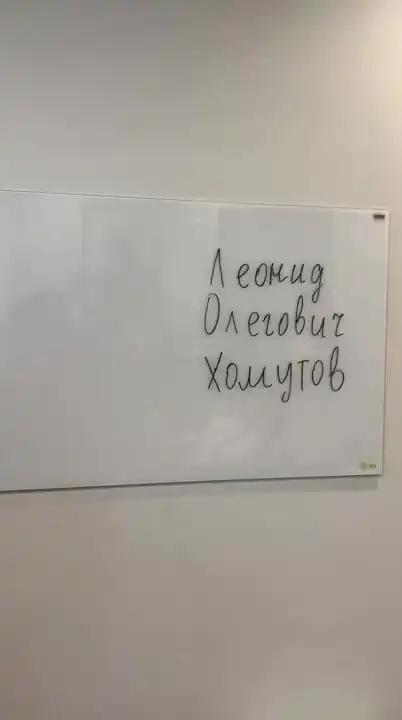 Леонид
Олегович
Хомутов